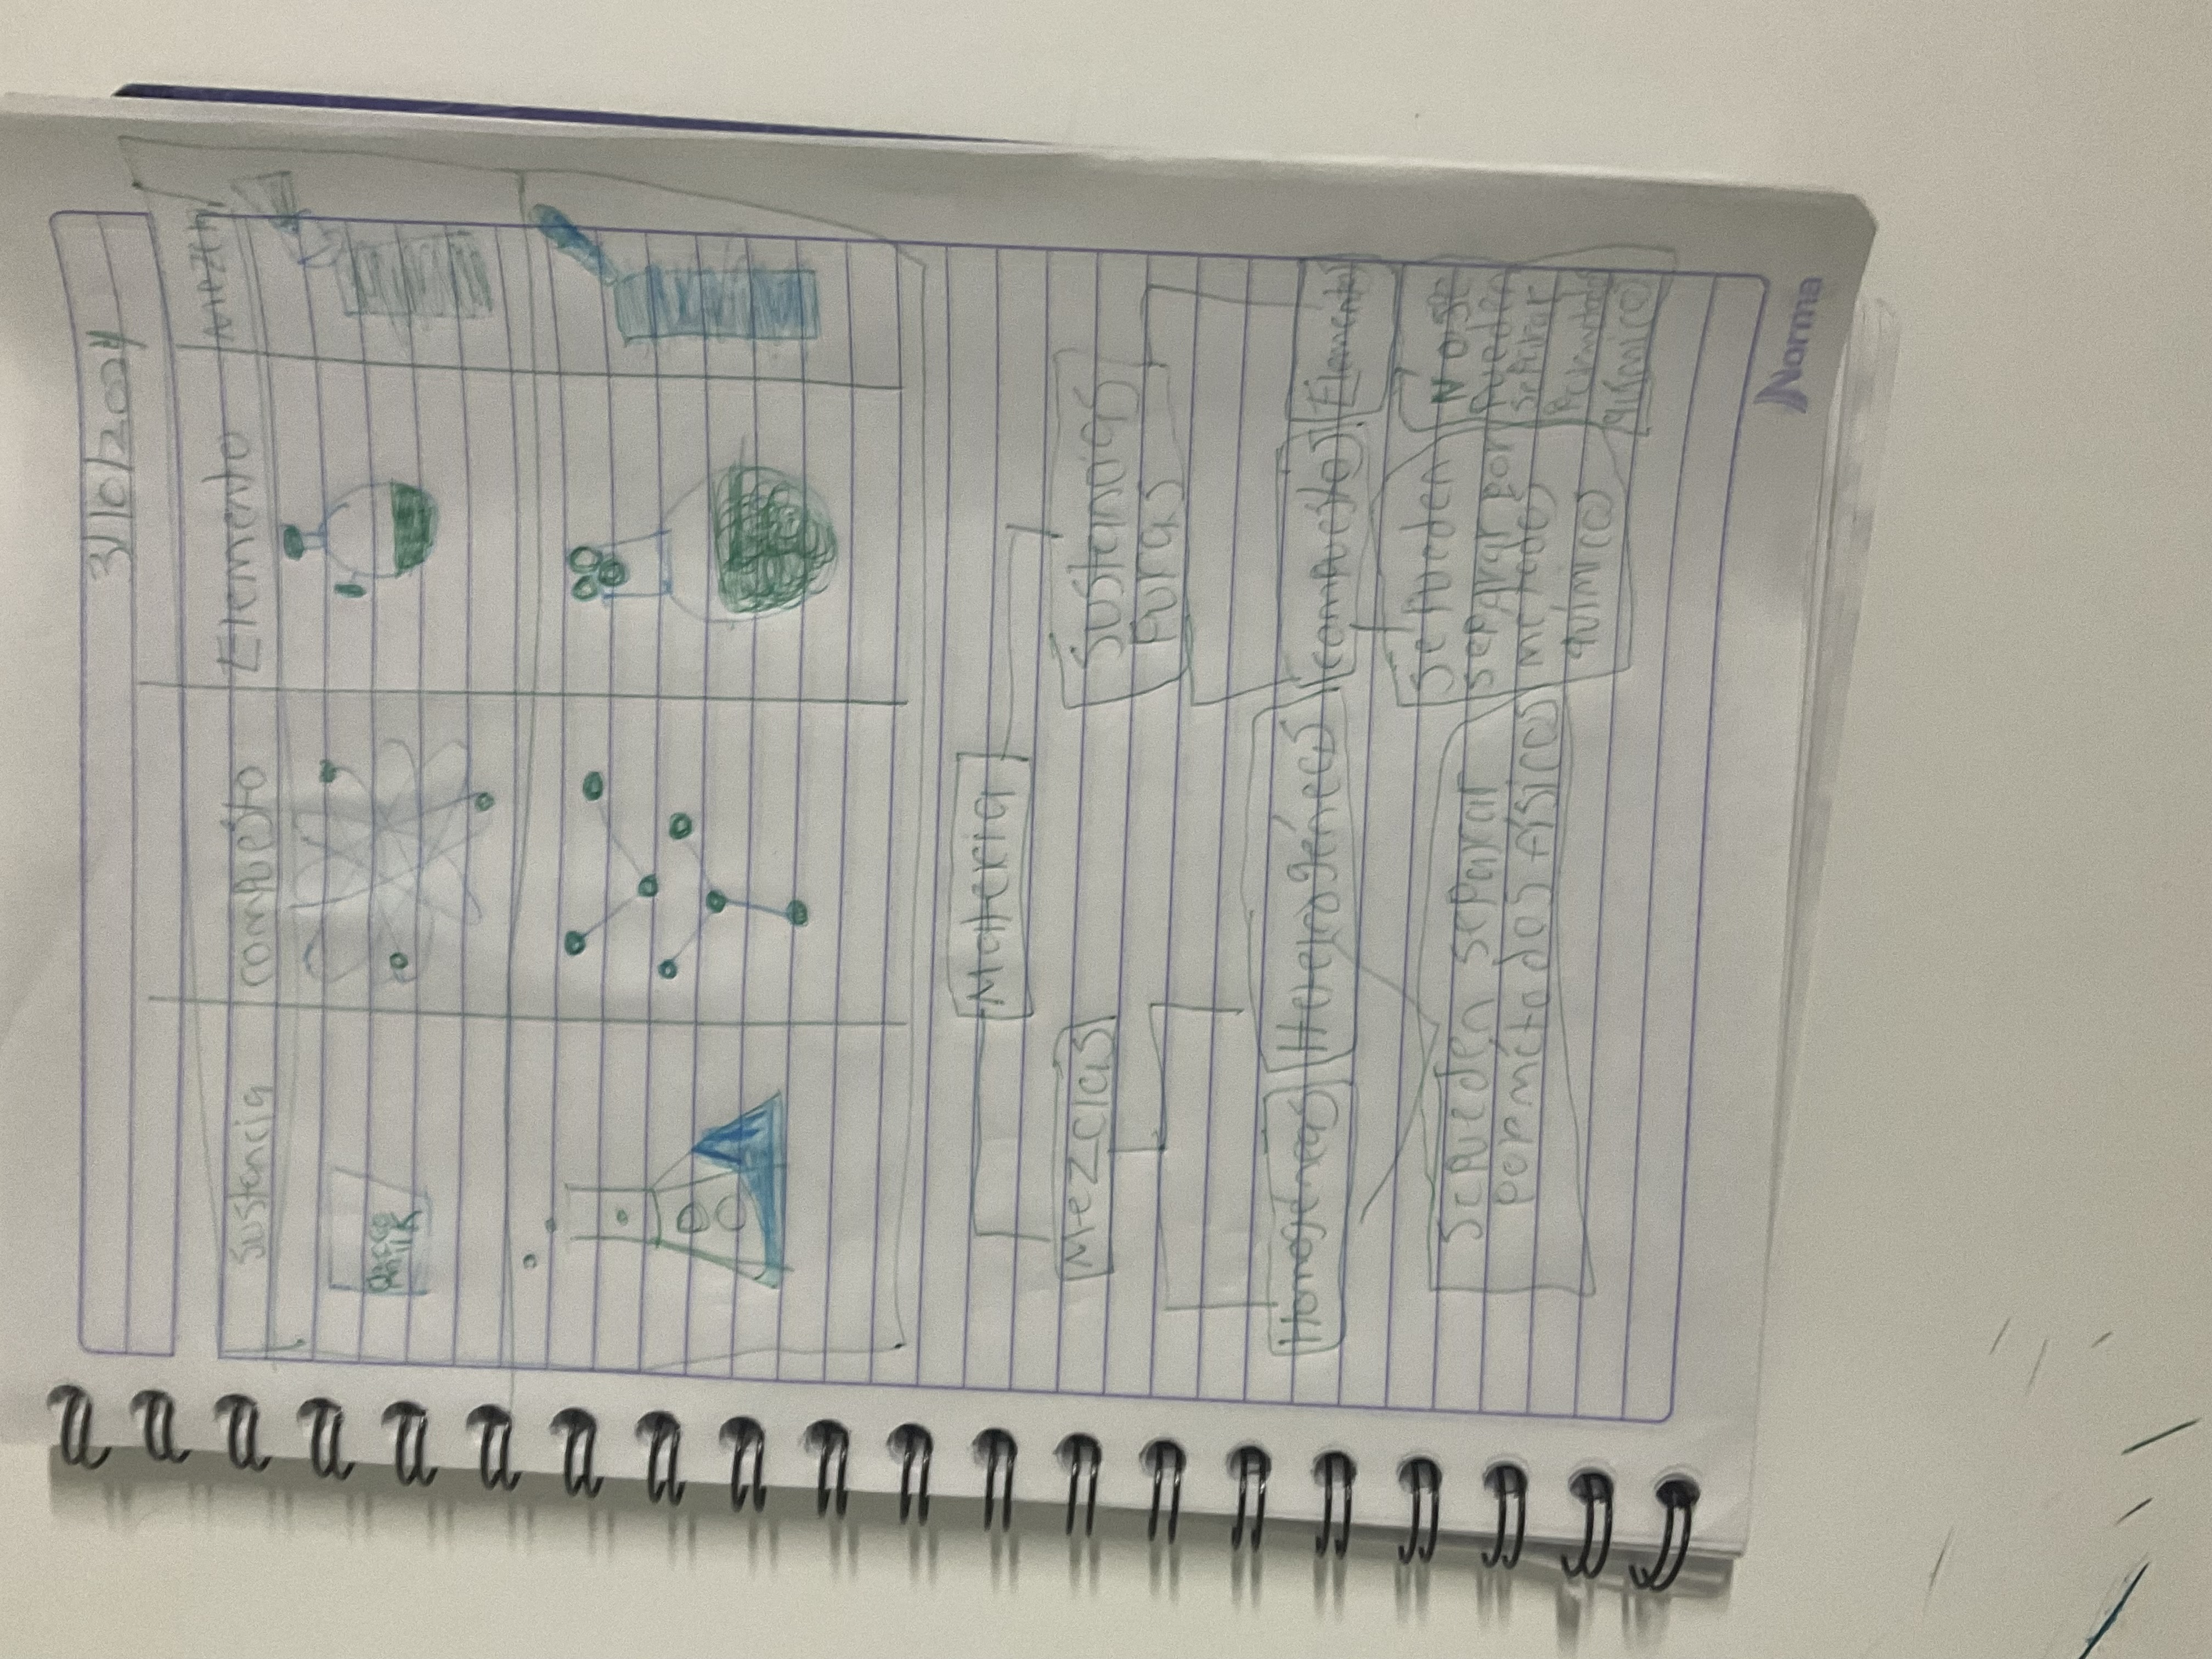 3/10/2024
Sustancia
compuesto
Elemento
milk
Materia
Mezclas
Sustancias
Puras
Homogéneas
Heterogéneas
compuestos
Elementos
Se pueden separar
por métodos físicos
Se pueden
separar por
metodos
químicos
No se
pueden
separar
químicos
Norma